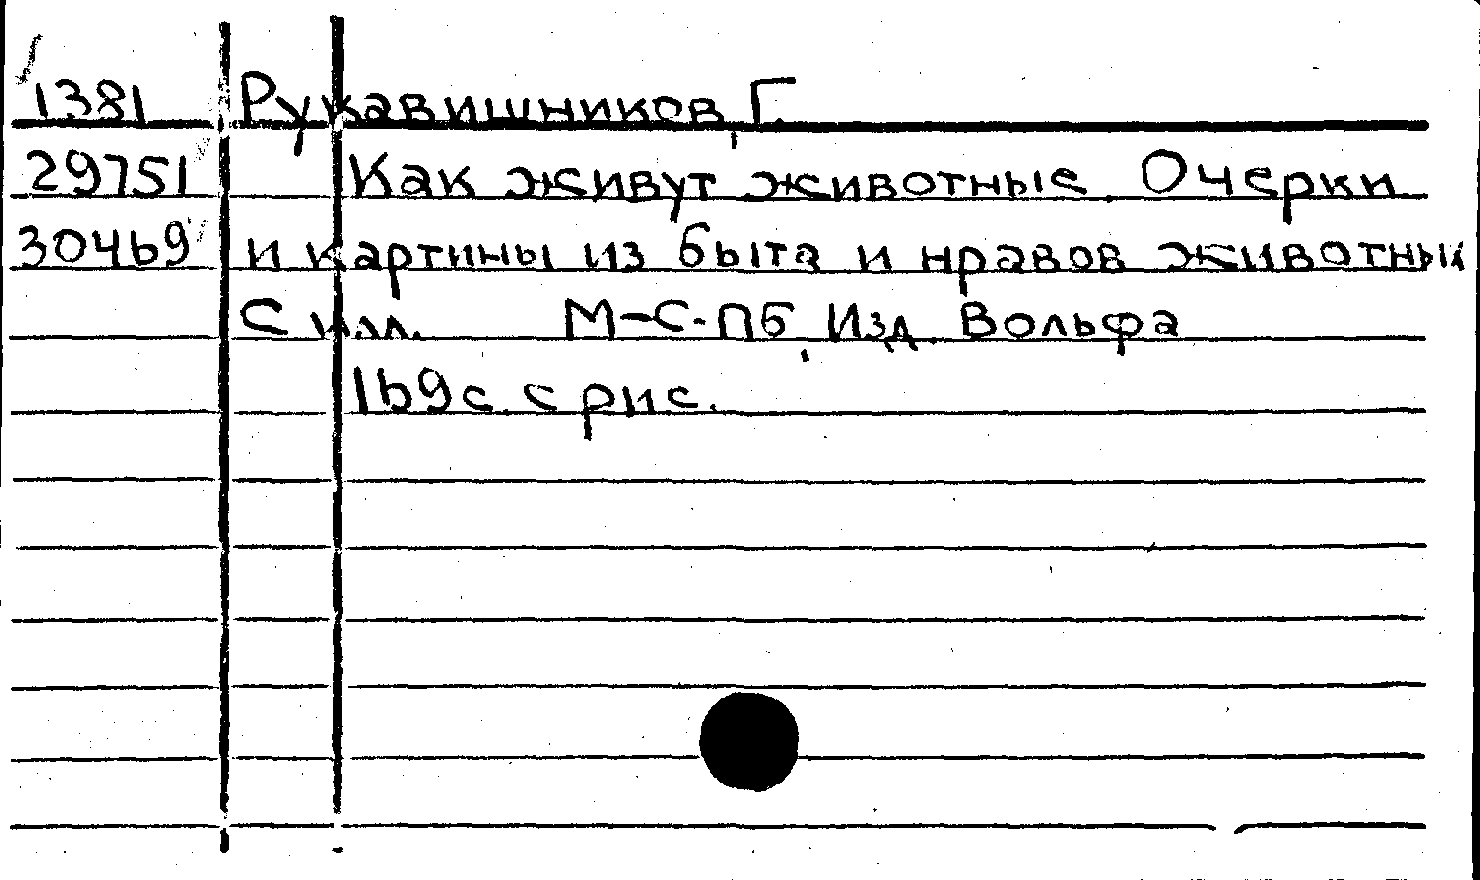 1381 Рукавишников, Г.
29751 Как живут животные. Очерки
30469 и картины из быта и нравов животных
С илл. М-С-Пб, Изд. Вольфа
169с. с рис.